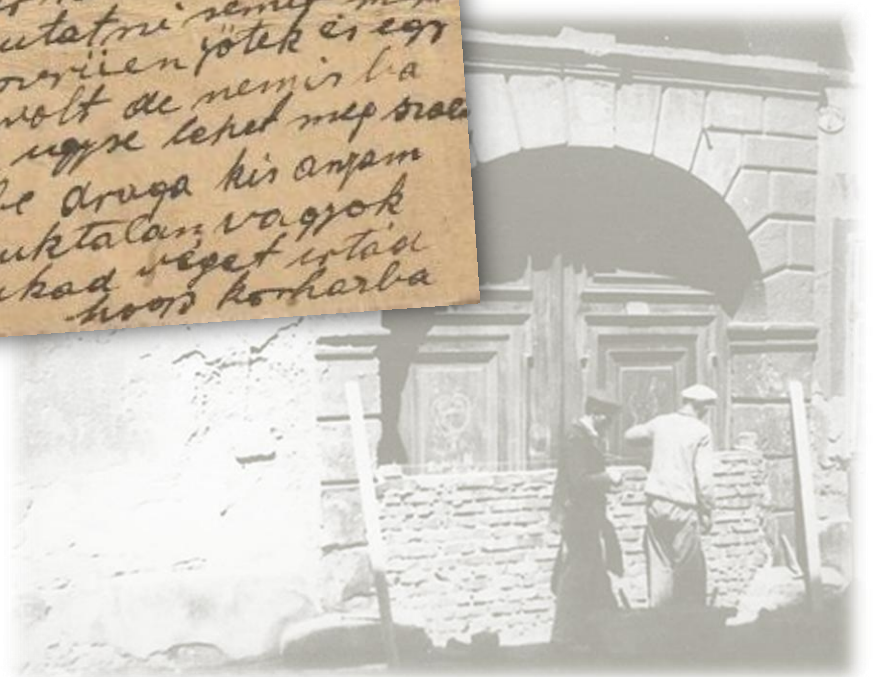 utatni semig
jötek és egy
volt de nem is ba
ugyse lehet meg
draga kis anyam
uktalan vagyok
akad véget irtád
hogy korhazba